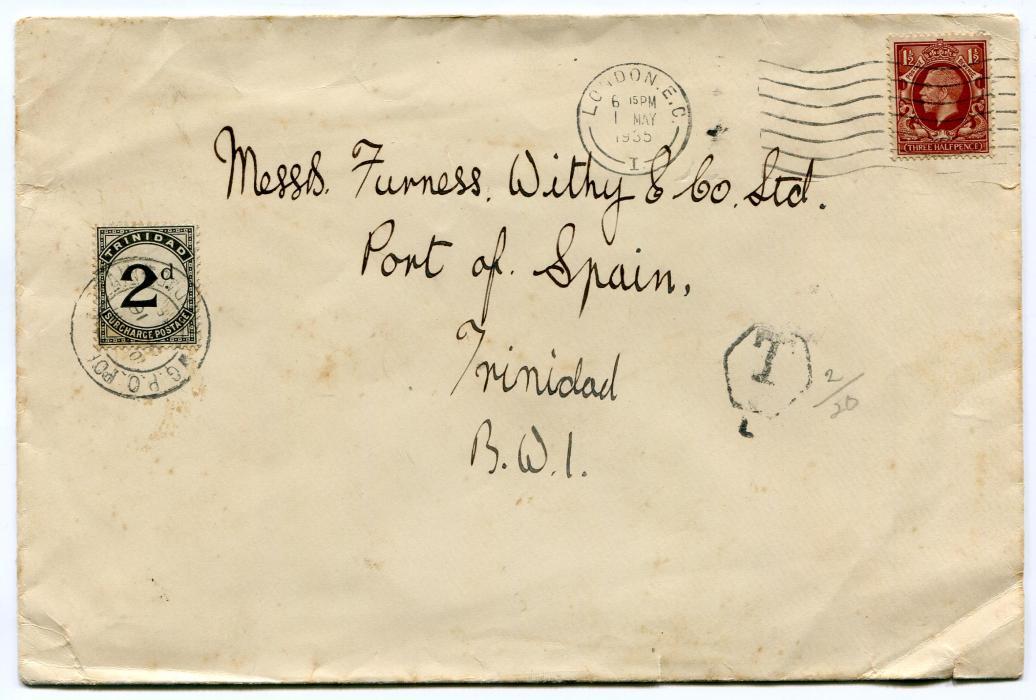 LONDON.E.C.
6 15PM
1 MAY
1935
I
1½ 1½
(THREE HALFPENCE)
Messrs. Furness, Withy & Co. Ltd.
Port of Spain,
Trinidad
B.W.I.
TRINIDAD
2d
SURCHARGE POSTAGE
G.P.O.
T
2/20